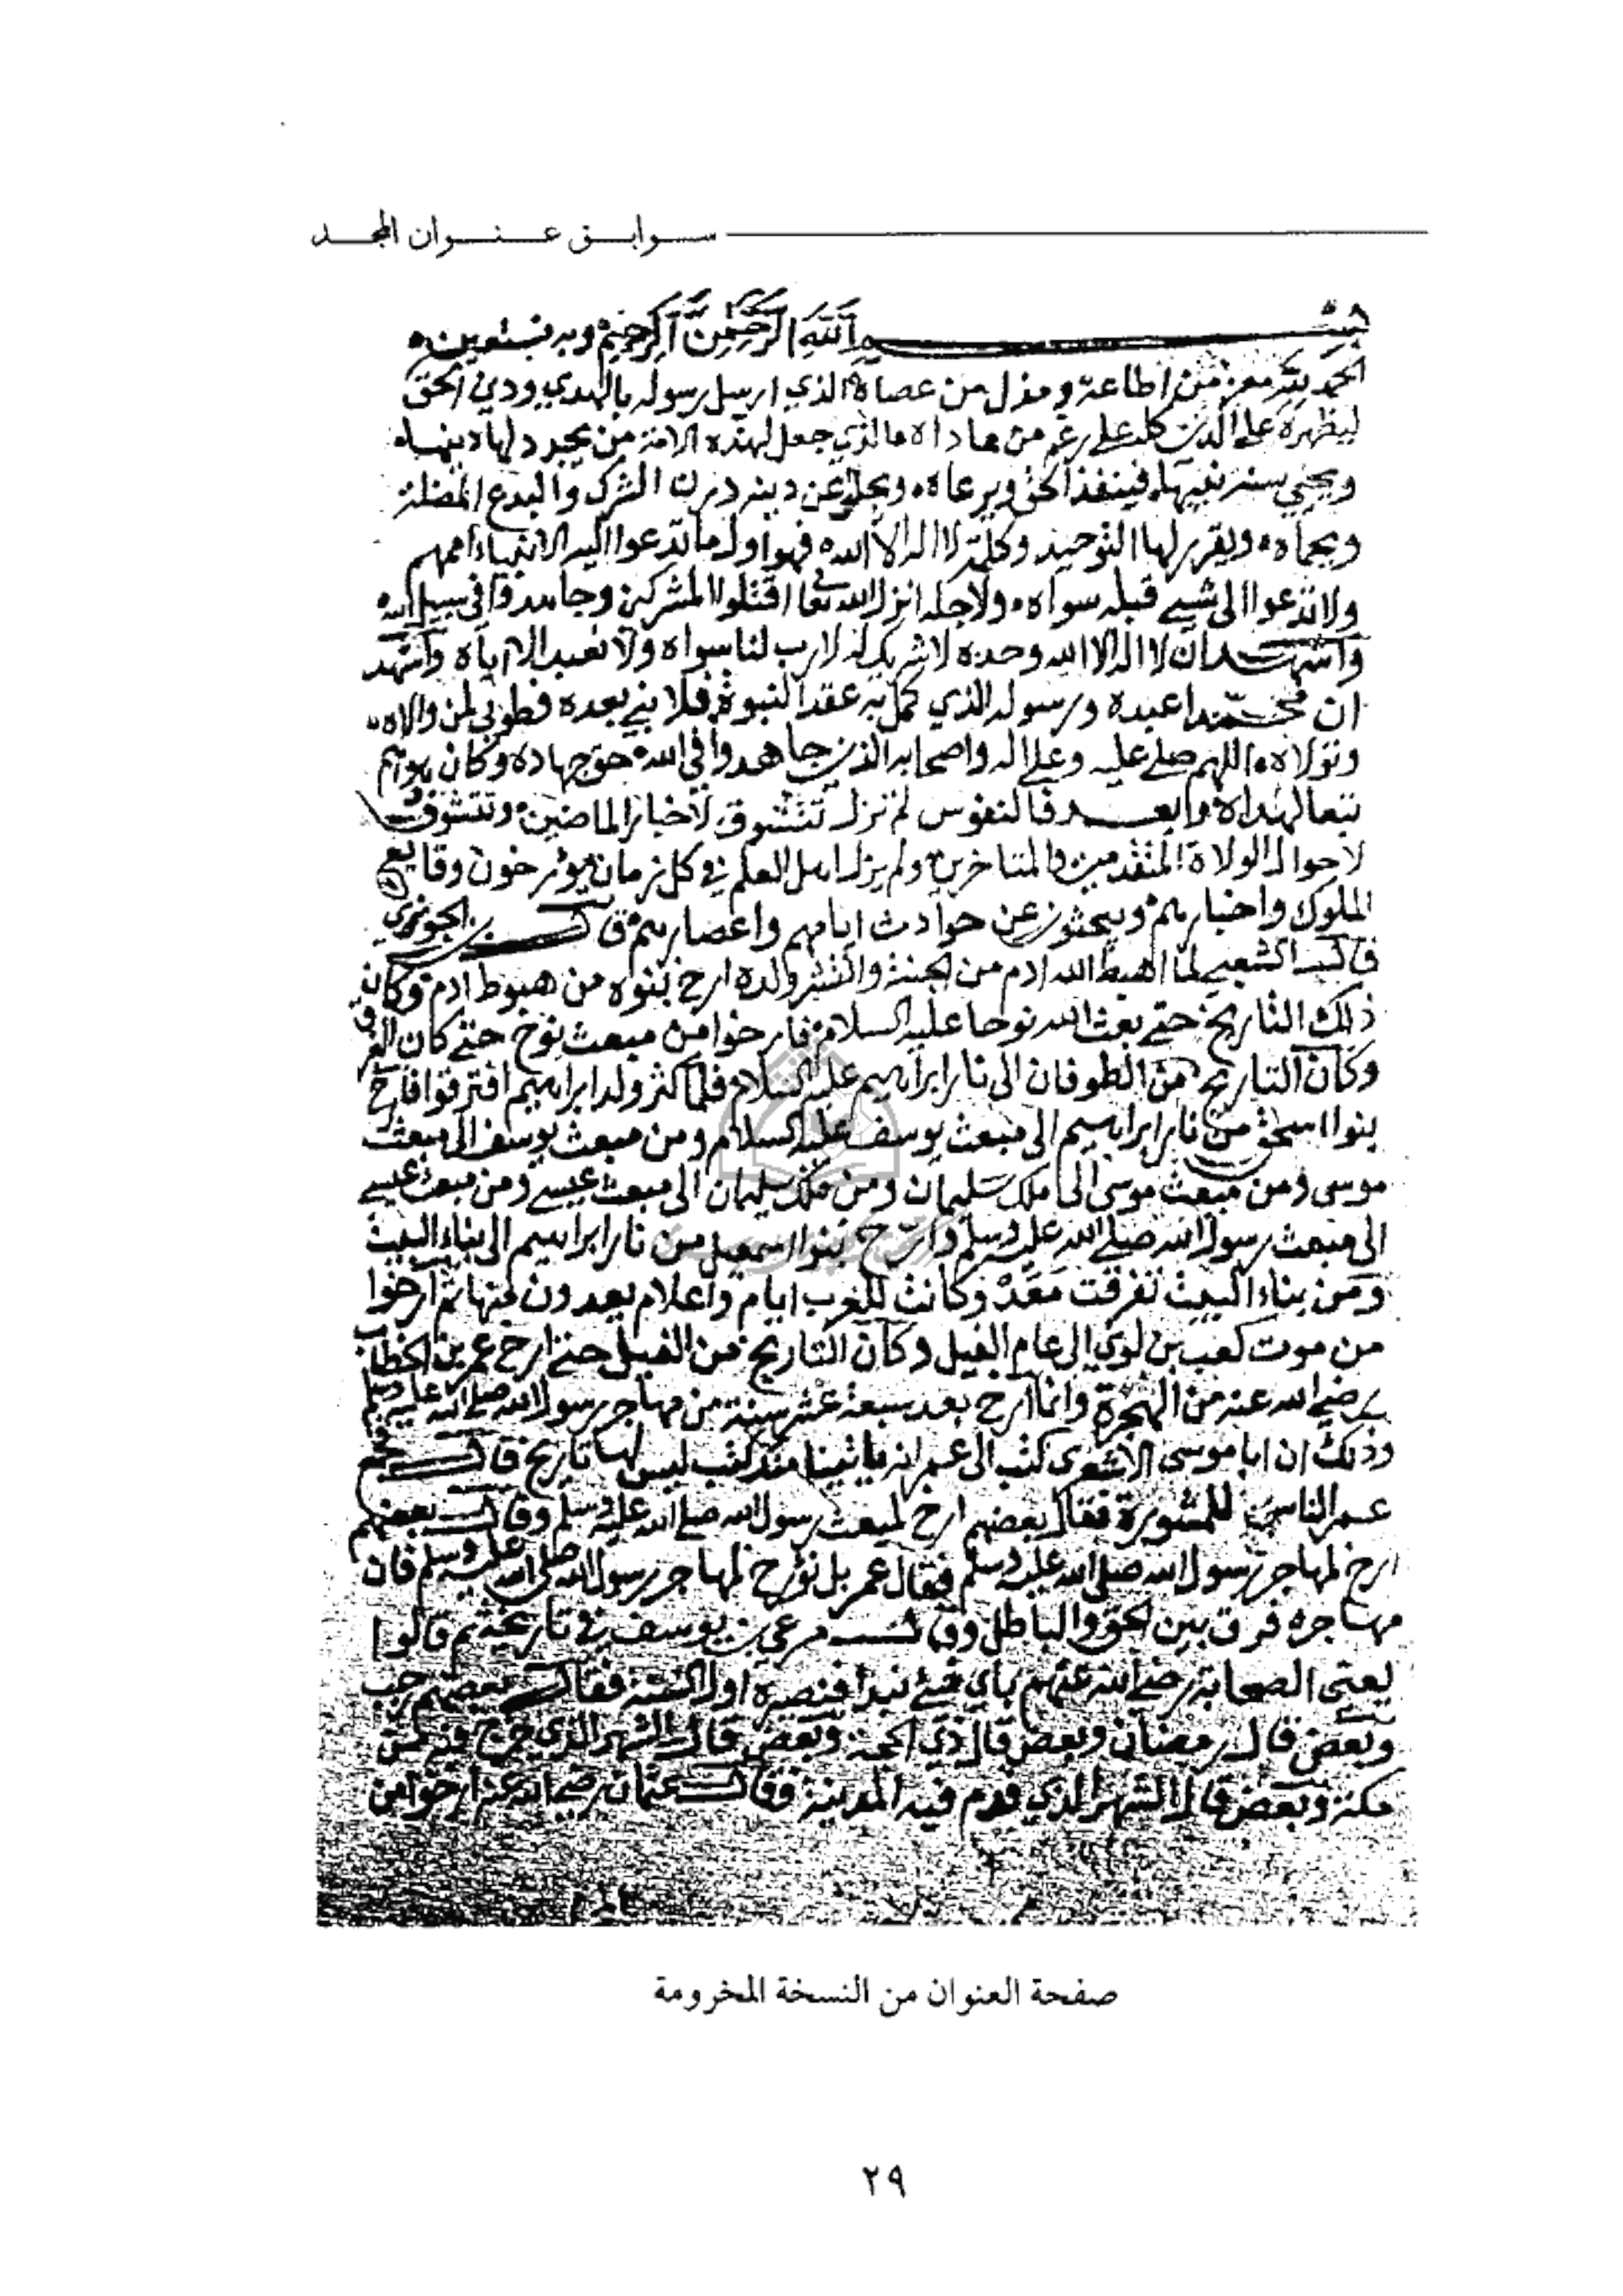 سوابق عنوان المجد
بسم الله الرحمن الرحيم وبه نستعين
الحمد لله معز من اطاعه ومذل من عصاه الذي ارسل رسوله بالهدي ودين الحق
ليظهره على الدين كله على رغم من عاداه الذي جعل لهذه الامة من يجدد لها دينها
ويحيي سنة نبيها فينفذ الحق ويرعاه ويجلو عن دينه درن الشرك والبدع المضلة
ويحماه ويقرر لها التوحيد وكلمة لا اله الا الله فهو اول ما تدعوا اليه الانبياء اممهم
ولا تدعوا الى شيء قبله سواه ولاجله انزل الله تعا اقتلوا المشركين وجاهدوا في سبيل الله
واشهد ان لا اله الا الله وحده لا شريك له لا رب لنا سواه ولا نعبد الا اياه واشهد
ان محمدا عبده ورسوله الذي كمل به عقد النبوة فلا نبي بعده فطوبى لمن والاه
وتولاه اللهم صلي عليه وعلى اله واصحابه الذين جاهدوا في الله حق جهاده وكان هواهم
تبعا لهداه وبعد فالنفوس لم تزل تتشوق لاخبار الماضين وتتشوف
لاحوال الولاة المتقدمين والمتاخرين ولم يزل اهل العلم في كل زمان يؤرخون وقايع
الملوك واخبارهم ويبحثون عن حوادث ايامهم واعصارهم قال ابن الجوزي
قال الشعبي لما اهبط الله ادم من الجنة وانتشر ولده ارخ بنوه من هبوط ادم وكان
ذلك التاريخ حتى بعث الله نوحا عليه السلام فارخوا من مبعث نوح حتى كان الغرق
وكان التاريخ من الطوفان الى نار ابراهيم عليه السلام فلما كثر ولد ابراهيم افترقوا فارخ
بنوا اسحق من نار ابراهيم الى مبعث يوسف عليه السلام ومن مبعث يوسف الى مبعث
موسى ومن مبعث موسى الى ملك سليمان ومن ملك سليمان الى مبعث عيسى ومن مبعث عيسى
الى مبعث رسول الله صلى الله عليه وسلم وارخ بنوا اسمعيل من نار ابراهيم الى بناء البيت
ومن بناء البيت تفرقت معد وكانت للعرب ايام واعلام يعدونها ثم ارخوا
من موت كعب بن لوي الى عام الفيل وكان التاريخ من الفيل حتى ارخ عمر بن الخطاب
رضي الله عنه من الهجرة وانما ارخ بعد سبعة عشر سنة من مهاجر رسول الله صلى الله عليه وسلم
وذلك ان ابا موسى الاشعري كتب الى عمر انه ياتينا منك كتب ليس لها تاريخ قال فجمع
عمر الناس للمشورة فقال بعضهم ارخ لمبعث رسول الله صلى الله عليه وسلم وقال بعضهم
ارخ لمهاجر رسول الله صلى الله عليه وسلم فقال عمر بل نؤرخ لمهاجر رسول الله صلى الله عليه وسلم فان
مهاجره فرق بين الحق والباطل وقال مرعي بن يوسف في تاريخه ثم قالوا
يعني الصحابة رضي الله عنهم باي شيء نبدا فنصيره اول السنة فقال بعضهم رجب
وبعض قال رمضان وبعض قال ذي الحجة وبعض قال الشهر الذي خرج فيه من
مكة وبعض قال الشهر الذي قدم فيه المدينة فقال عثمان رضي الله عنه ارخوا من
صفحة العنوان من النسخة المخرومة
٢٩